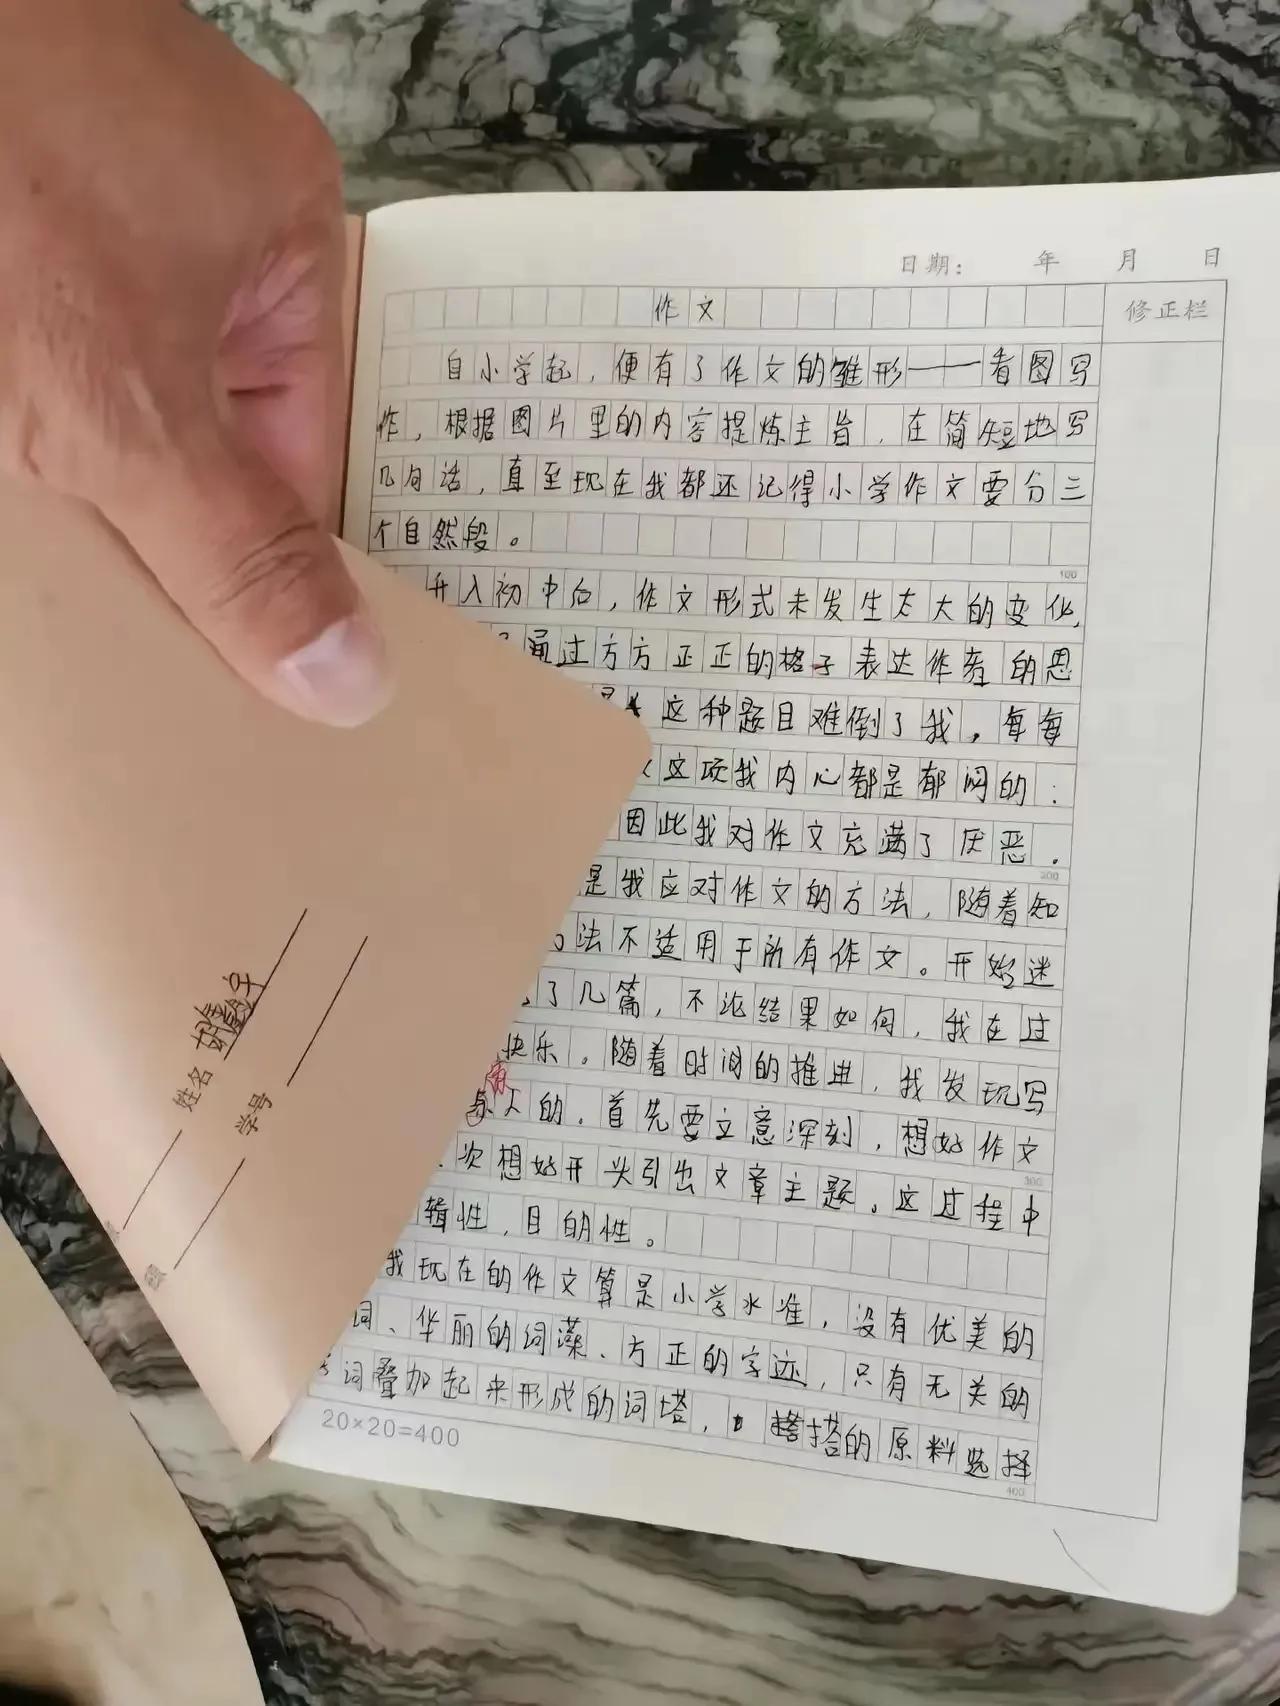 日期： 年 月 日
修正栏
作文
自小学起，便有了作文的雏形——看图写
作，根据图片里的内容提炼主旨，在简短地写
几句话，直至现在我都还记得小学作文要分三
个自然段。
100
升入初中后，作文形式未发生太大的变化，
通过方方正正的格子表达作者的思
这种题目难倒了我，每每
这项我内心都是郁闷的：
因此我对作文充满了厌恶．
200
是我应对作文的方法，随着知
法不适用于所有作文。开始迷
了几篇，不论结果如何，我在过
快乐。随着时间的推进，我发现写
的．首先要立意深刻，想好作文
300
次想好开头引出文章主题。这过程中
辑性，目的性。
我现在的作文算是小学水准，没有优美的
词、华丽的词藻、方正的字迹，只有无关的
词叠加起来形成的词塔，搭的原料选择
20×20=400
400
姓名
学号